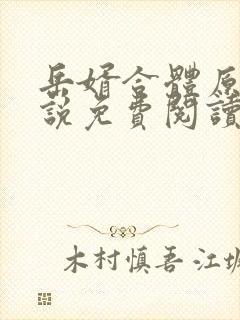 岳婿合體原
說免費閱讀
木村慎吾 江坂